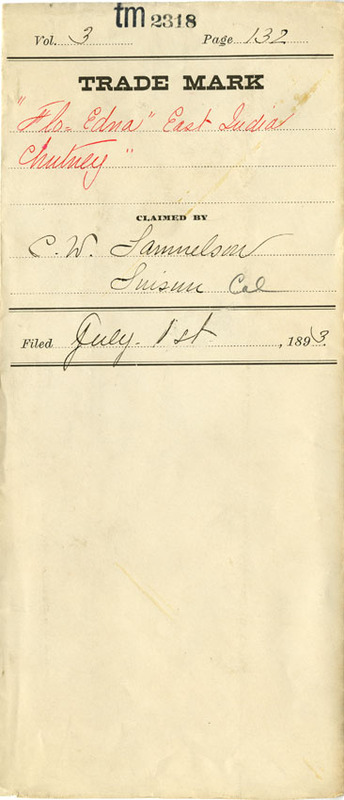 tm 2318
Vol. 3 Page 132
TRADE MARK
"Flo-Edna" East India
Chutney"
CLAIMED BY
C. W. Samuelson
Suisun Cal
Filed July 1st, 1893.